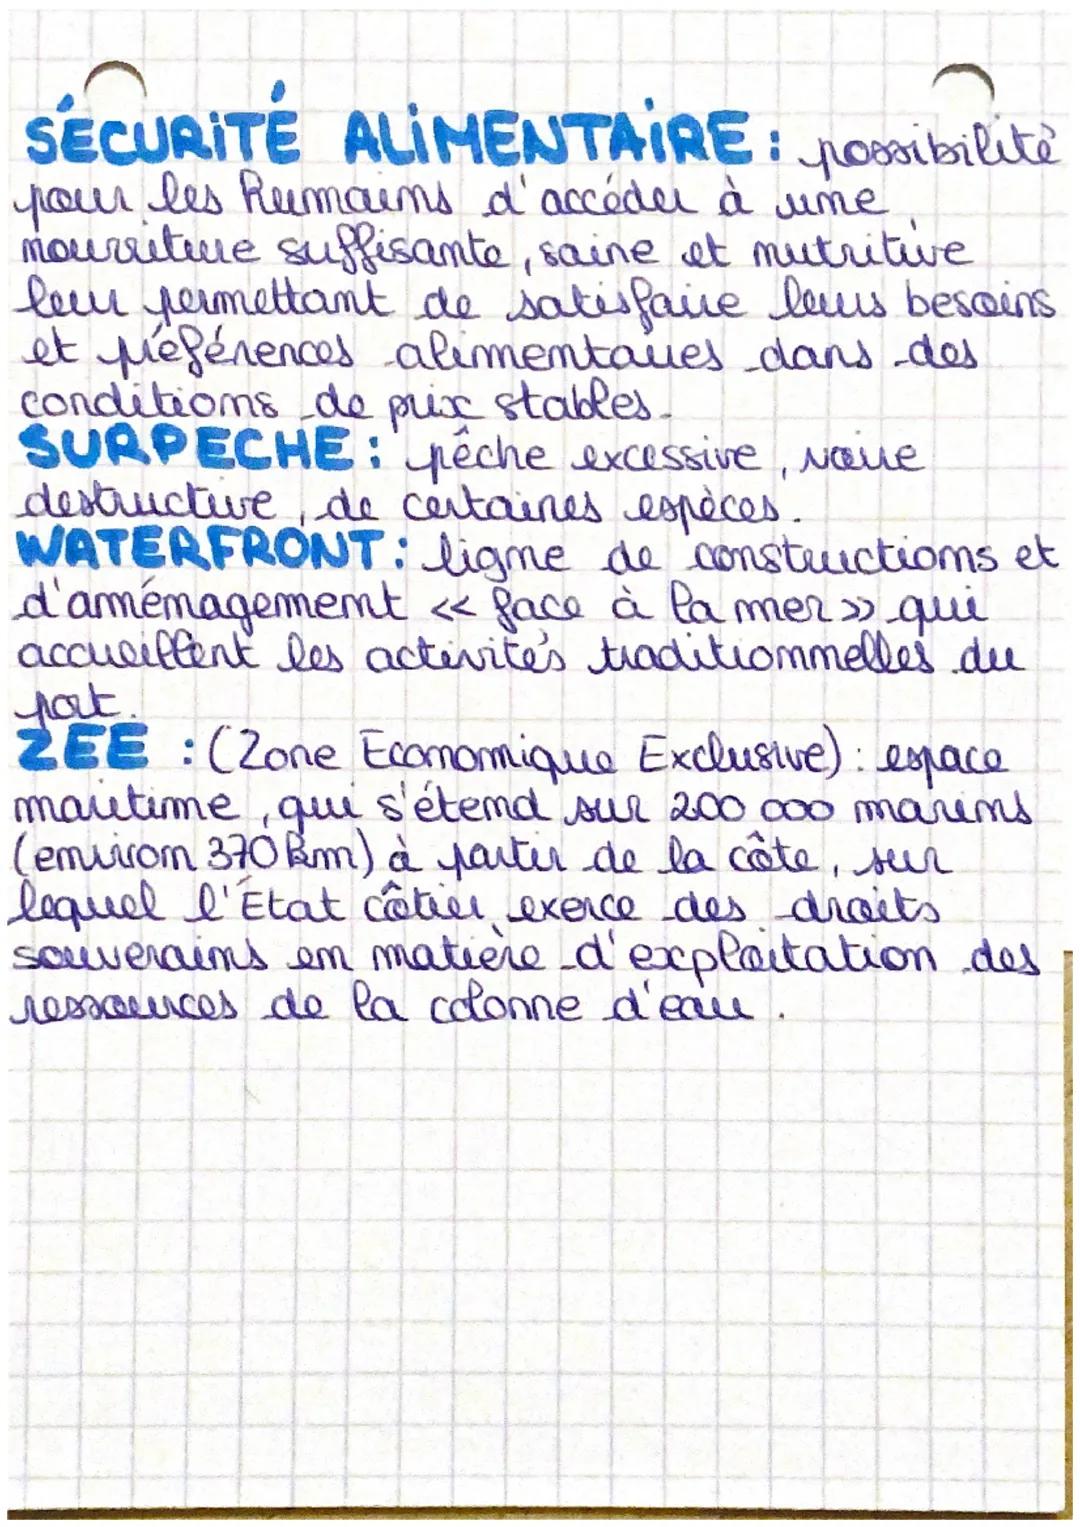 SÉCURITÉ ALIMENTAIRE : possibilité
pour les Humains d'accéder à une
nourriture suffisante, saine et nutritive
leur permettant de satisfaire leurs besoins
et préférences alimentaires dans des
conditions de prix stables.
SURPECHE : pêche excessive, voire
destructive, de certaines espèces.
WATERFRONT : ligne de constructions et
d'aménagement << face à la mer >> qui
accueillent les activités traditionnelles du
port.
ZEE : (Zone Economique Exclusive) : espace
maritime, qui s'étend sur 200 000 marins
(environ 370 km) à partir de la côte, sur
lequel l'État côtier exerce des droits
souverains en matière d'exploitation des
ressources de la colonne d'eau.